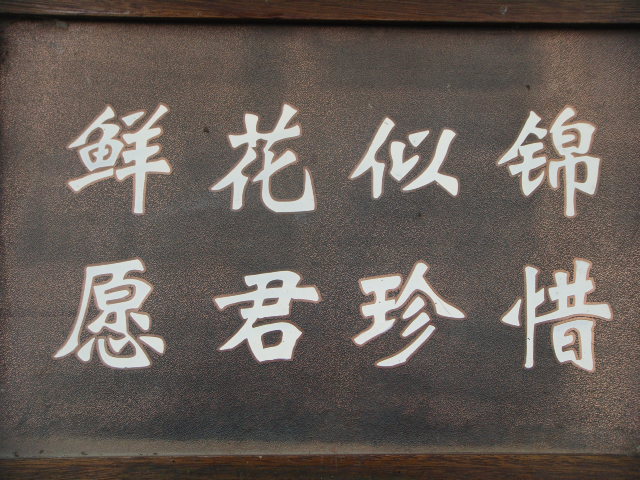 鲜花似锦
愿君珍惜